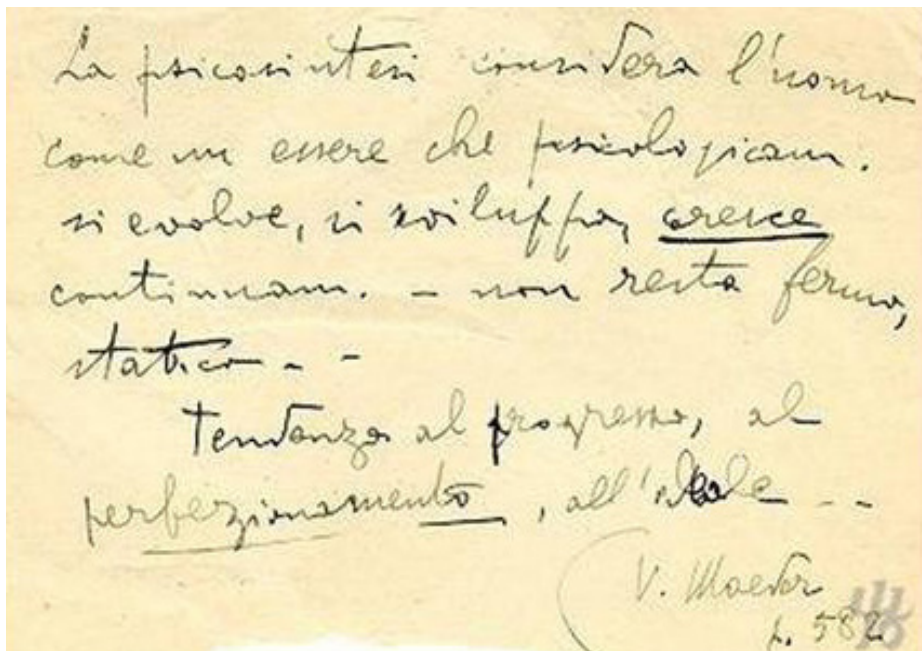 La psicosintesi considera l'uomo
come un essere che psicologicam.
si evolve, si sviluppa, cresce
continuam. - non resta fermo,
statico - -
Tendenza al progresso, al
perfezionamento, all'ideale - -
(V. Maeder
p. 582